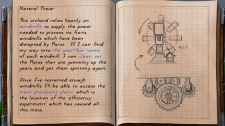 Natural Power
This orchard relies heavily on
windmills to supply the power
needed to process its fruits
windmills which have been
disrupted by Flurus. If I can find
my way into the
of each windmill I can clean out
the Flurus that are gumming up the
gears and get them spinning again.
Once I've restarted enough
windmills I'll be able to access the
main processing plant, which is
the location of the efficiency
experiment which has caused all
this mess.